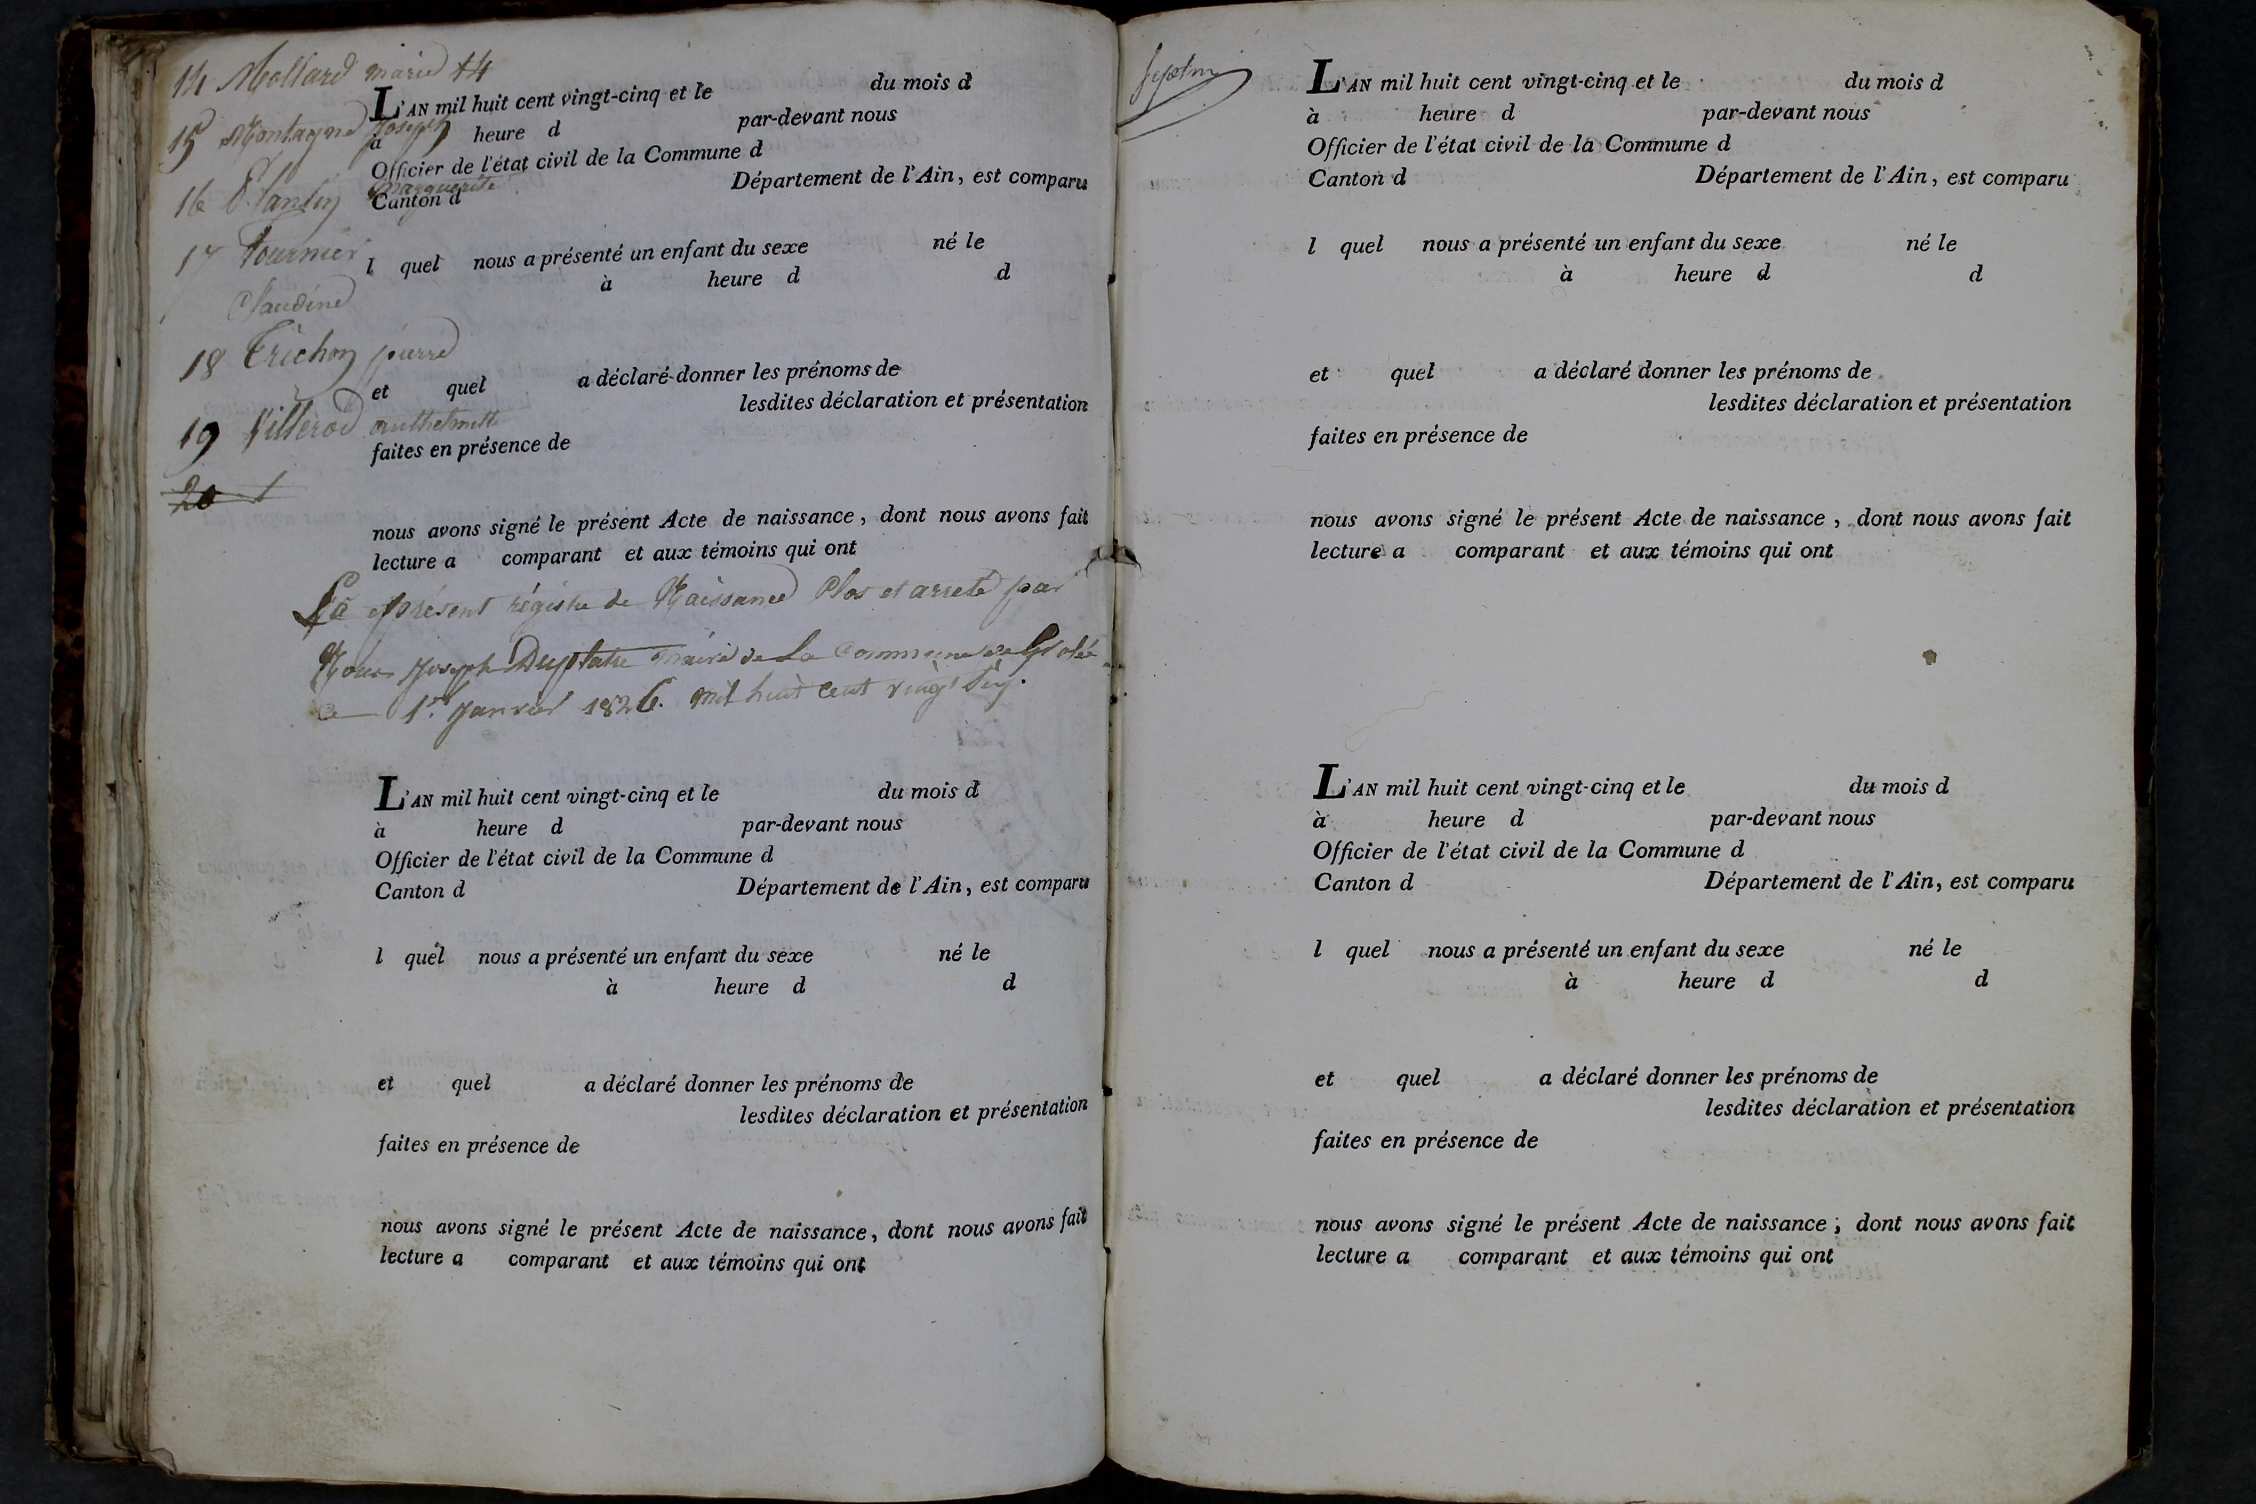 14 Mollard marie 14
L'AN mil huit cent vingt-cinq et le du mois d
15 Montagne Joseph
à heure d par-devant nous
Officier de l'état civil de la Commune d
16 Plantin Marguerite
Canton d Département de l'Ain, est comparu
17 Fournier
l quel nous a présenté un enfant du sexe né le
à heure d d
Claudine
18 Trichon pierre
et quel a déclaré donner les prénoms de
lesdites déclaration et présentation
19 Villerod
faites en présence de
20
nous avons signé le présent Acte de naissance, dont nous avons fait
lecture a comparant et aux témoins qui ont
présent régistre de Naissance Clos et arreté par
Nous Joseph Duplatre maire de La Commune de Grolée
ce 1er Janvier 1826. mil huit cent vingt Six.
L'AN mil huit cent vingt-cinq et le du mois d
à heure d par-devant nous
Officier de l'état civil de la Commune d
Canton d Département de l'Ain, est comparu
l quel nous a présenté un enfant du sexe né le
à heure d d
et quel a déclaré donner les prénoms de
lesdites déclaration et présentation
faites en présence de
nous avons signé le présent Acte de naissance, dont nous avons fait
lecture a comparant et aux témoins qui ont
L'AN mil huit cent vingt-cinq et le du mois d
à heure d par-devant nous
Officier de l'état civil de la Commune d
Canton d Département de l'Ain, est comparu
l quel nous a présenté un enfant du sexe né le
à heure d d
et quel a déclaré donner les prénoms de
lesdites déclaration et présentation
faites en présence de
nous avons signé le présent Acte de naissance, dont nous avons fait
lecture a comparant et aux témoins qui ont
L'AN mil huit cent vingt-cinq et le du mois d
à heure d par-devant nous
Officier de l'état civil de la Commune d
Canton d Département de l'Ain, est comparu
l quel nous a présenté un enfant du sexe né le
à heure d d
et quel a déclaré donner les prénoms de
lesdites déclaration et présentation
faites en présence de
nous avons signé le présent Acte de naissance, dont nous avons fait
lecture a comparant et aux témoins qui ont